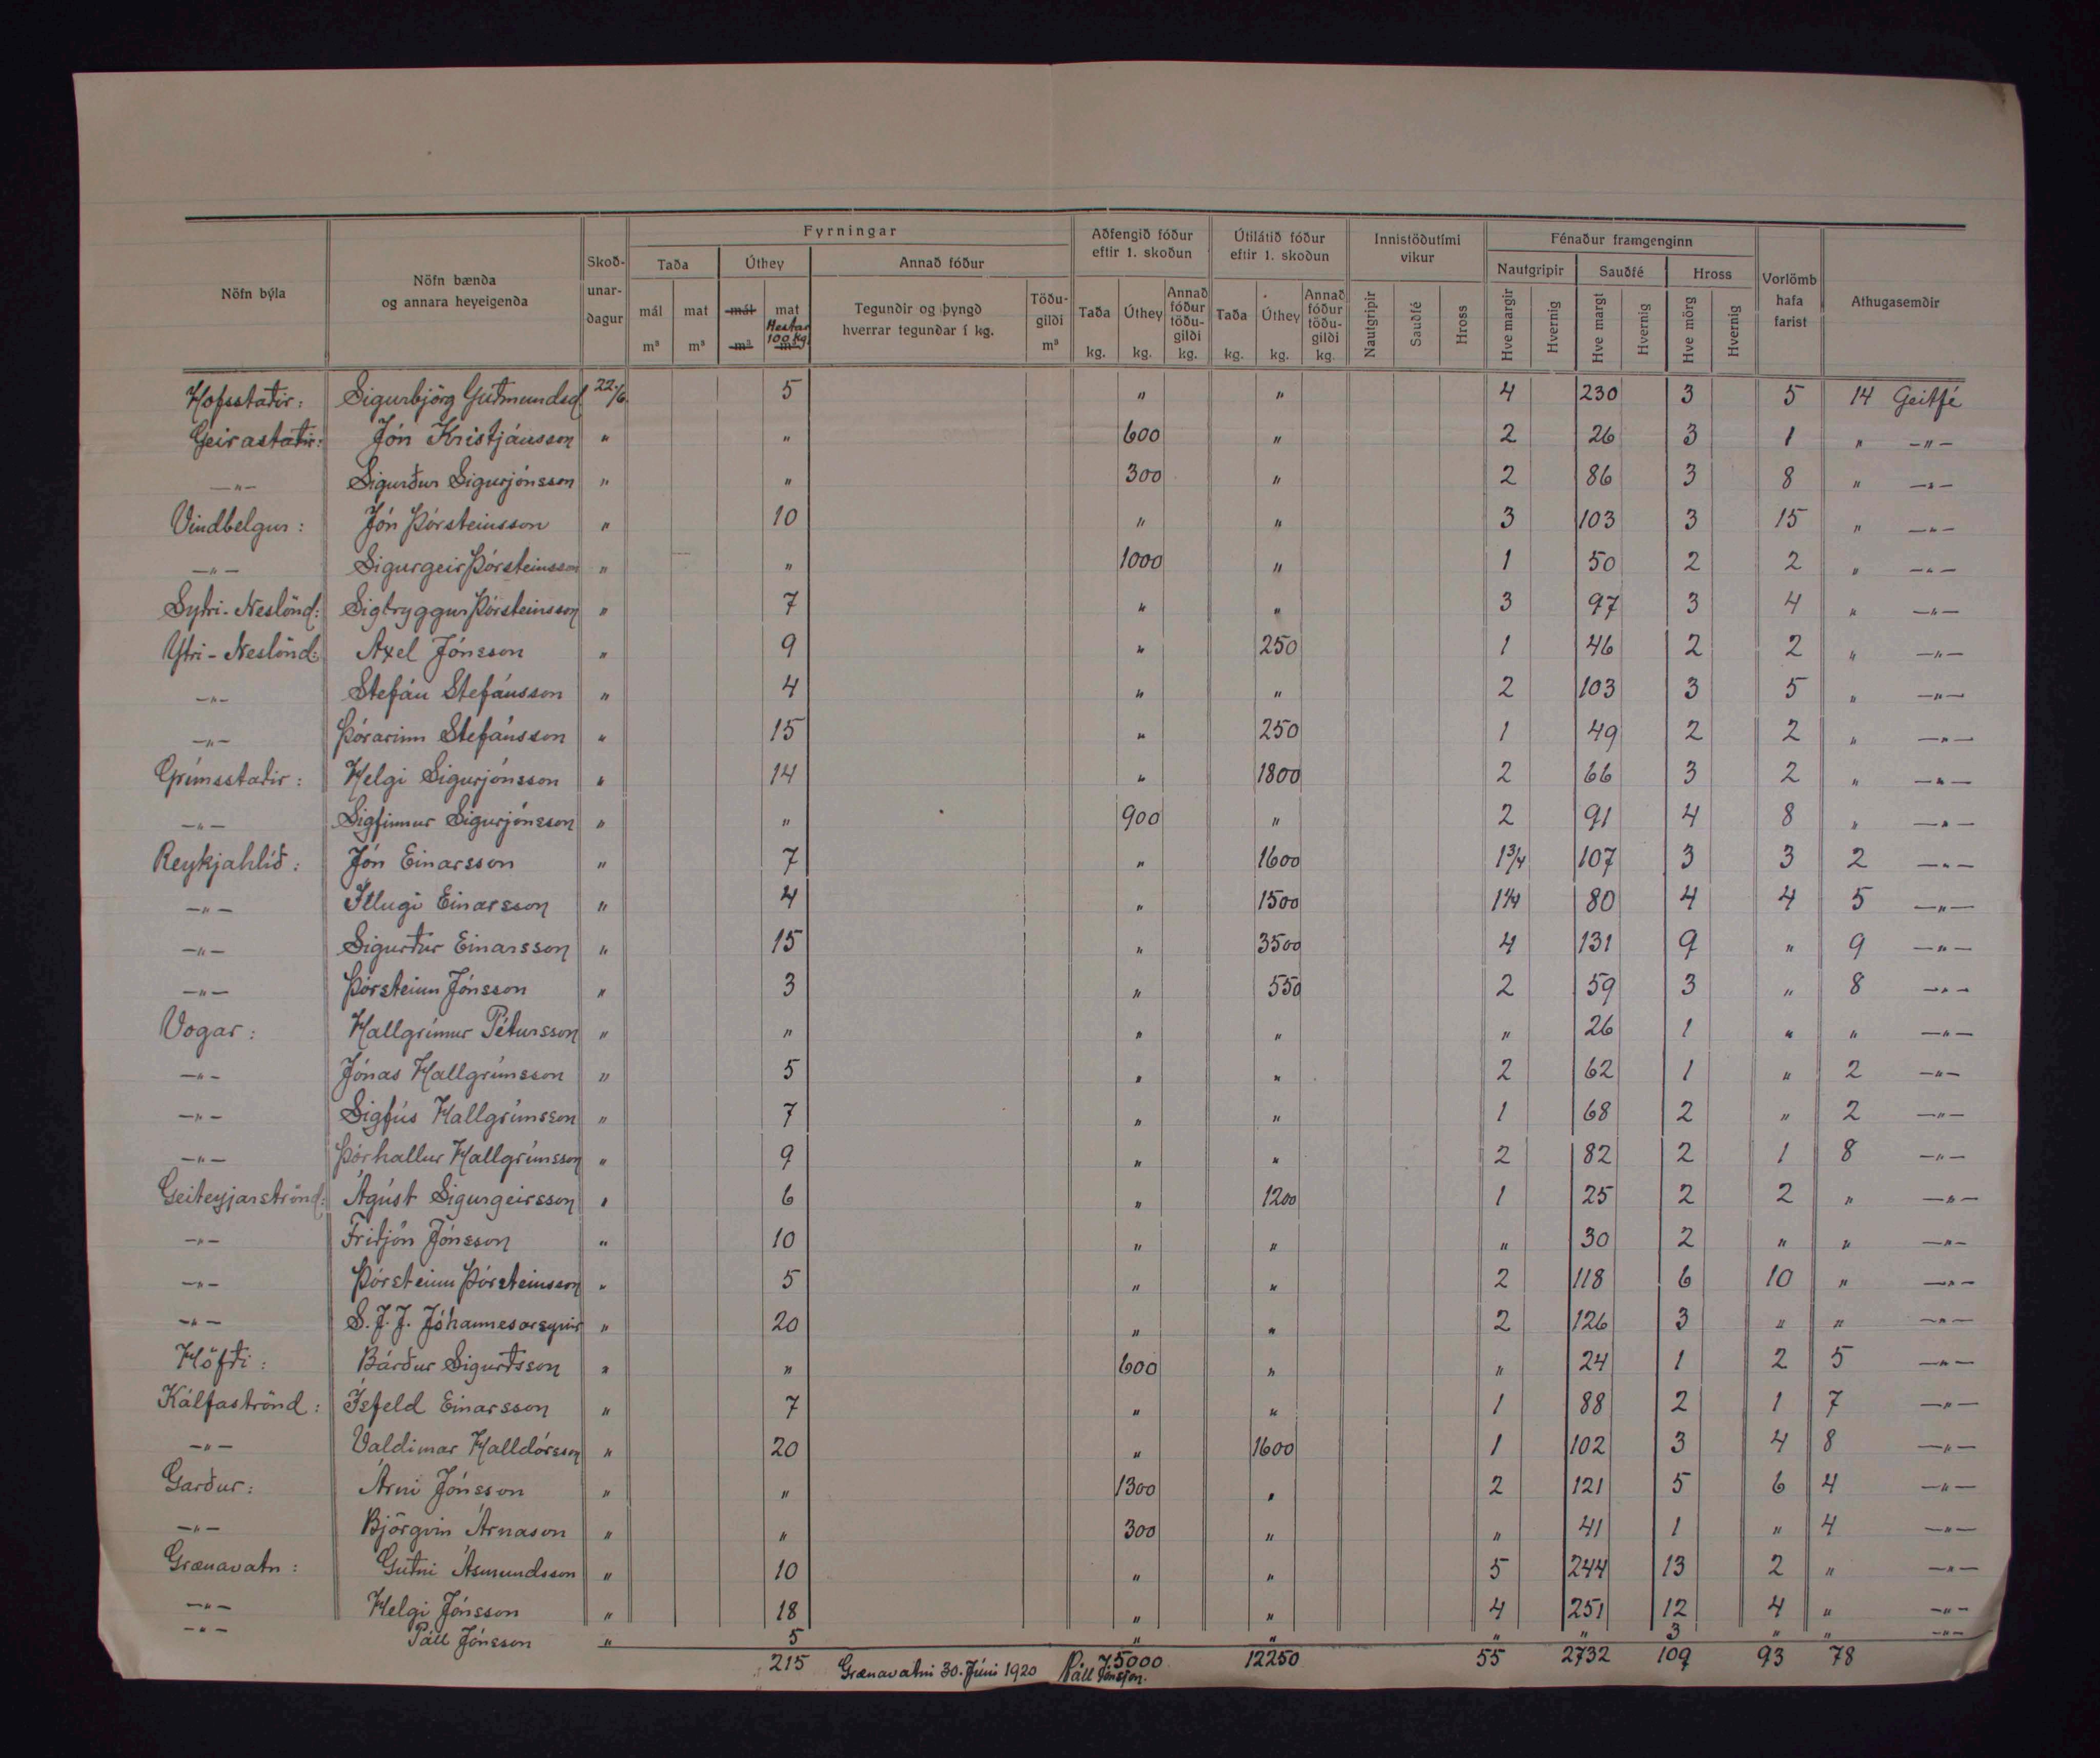 Nöfn býla | Nöfn bænda og annara heyeigenda | Skoð-unar-dagur | Fyrningar | Aðfengið fóður eftir 1. skoðun | Útilátið fóður eftir 1. skoðun | Innistöðutími vikur | Fénaður framgenginn | Vorlömb hafa farist | Athugasemdir
Taða | Úthey | Annað fóður | Nautgripir | Sauðfé | Hross
mál m³ | mat m³ | mál m³ | mat Hestar 100 kg. m³ | Tegundir og þyngd hverrar tegundar í kg. | Töðu-gildi m³ | Taða kg. | Úthey kg. | Annað fóður töðu-gildi kg. | Taða kg. | Úthey kg. | Annað fóður töðu-gildi kg. | Nautgripir | Sauðfé | Hross | Hve margir | Hvernig | Hve margt | Hvernig | Hve mörg | Hvernig
Hofsstaðir: Sigurbjörg Guðmundsd 22/6 5 " " 4 230 3 5 14 Geitfé
Geirastaðir: Jón Kristjánsson " " 600 " 2 26 3 1 " —"—
—"— Sigurður Sigurjónsson " " 300 " 2 86 3 8 " —"—
Vindbelgur: Jón Þórsteinsson " 10 " " 3 103 3 15 " —"—
—"— Sigurgeir Þórsteinsson " " 1000 " 1 50 2 2 " —"—
Sytri-Neslönd: Sigtryggur Þórsteinsson " 7 " " 3 97 3 4 " —"—
Ytri-Neslönd: Axel Jónsson " 9 " 250 1 46 2 2 " —"—
—"— Stefán Stefánsson " 4 " " 2 103 3 5 " —"—
—"— Þórarinn Stefánsson " 15 " 250 1 49 2 2 " —"—
Grímsstaðir: Helgi Sigurjónsson " 14 " 1800 2 66 3 2 " —"—
—"— Sigfinnur Sigurjónsson " " 900 " 2 91 4 8 " —"—
Reykjahlíð: Jón Einarsson " 7 " 1600 1 3/4 107 3 3 2 —"—
—"— Illugi Einarsson " 4 " 1500 1 1/4 80 4 4 5 —"—
—"— Sigurður Einarsson " 15 " 3500 4 131 9 " 9 —"—
—"— Þórsteinn Jónsson " 3 " 550 2 59 3 " 8 —"—
Vogar: Hallgrímur Pétursson " " " " " 26 1 " " —"—
—"— Jónas Hallgrímsson " 5 " " 2 62 1 " 2 —"—
—"— Sigfús Hallgrímsson " 7 " " 1 68 2 " 2 —"—
—"— Þórhallur Hallgrímsson " 9 " " 2 82 2 1 8 —"—
Geiteyjarströnd: Ágúst Sigurgeirsson " 6 " 1200 1 25 2 2 " —"—
—"— Friðjón Jónsson " 10 " " " 30 2 " " —"—
—"— Þórsteinn Þórsteinsson " 5 " " 2 118 6 10 " —"—
—"— S. J. J. Jóhannesarsynir " 20 " " 2 126 3 " " —"—
Höfði: Bárður Sigurðsson " " 600 " " 24 1 2 5 —"—
Kálfaströnd: Ísfeld Einarsson " 7 " " 1 88 2 1 7 —"—
—"— Valdimar Halldórsson " 20 " 1600 1 102 3 4 8 —"—
Garður: Árni Jónsson " " 1300 " 2 121 5 6 4 —"—
—"— Björgvin Árnason " " 300 " " 41 1 " 4 —"—
Grænavatn: Guðni Ásmundsson " 10 " " 5 244 13 2 " —"—
—"— Helgi Jónsson " 18 " " 4 251 12 4 " —"—
—"— Páll Jónsson " 5 " " " " 3 " " —"—
215 5000 12250 55 2732 109 93 78
Grænavatni 30. Júní 1920 Páll Jónsson.